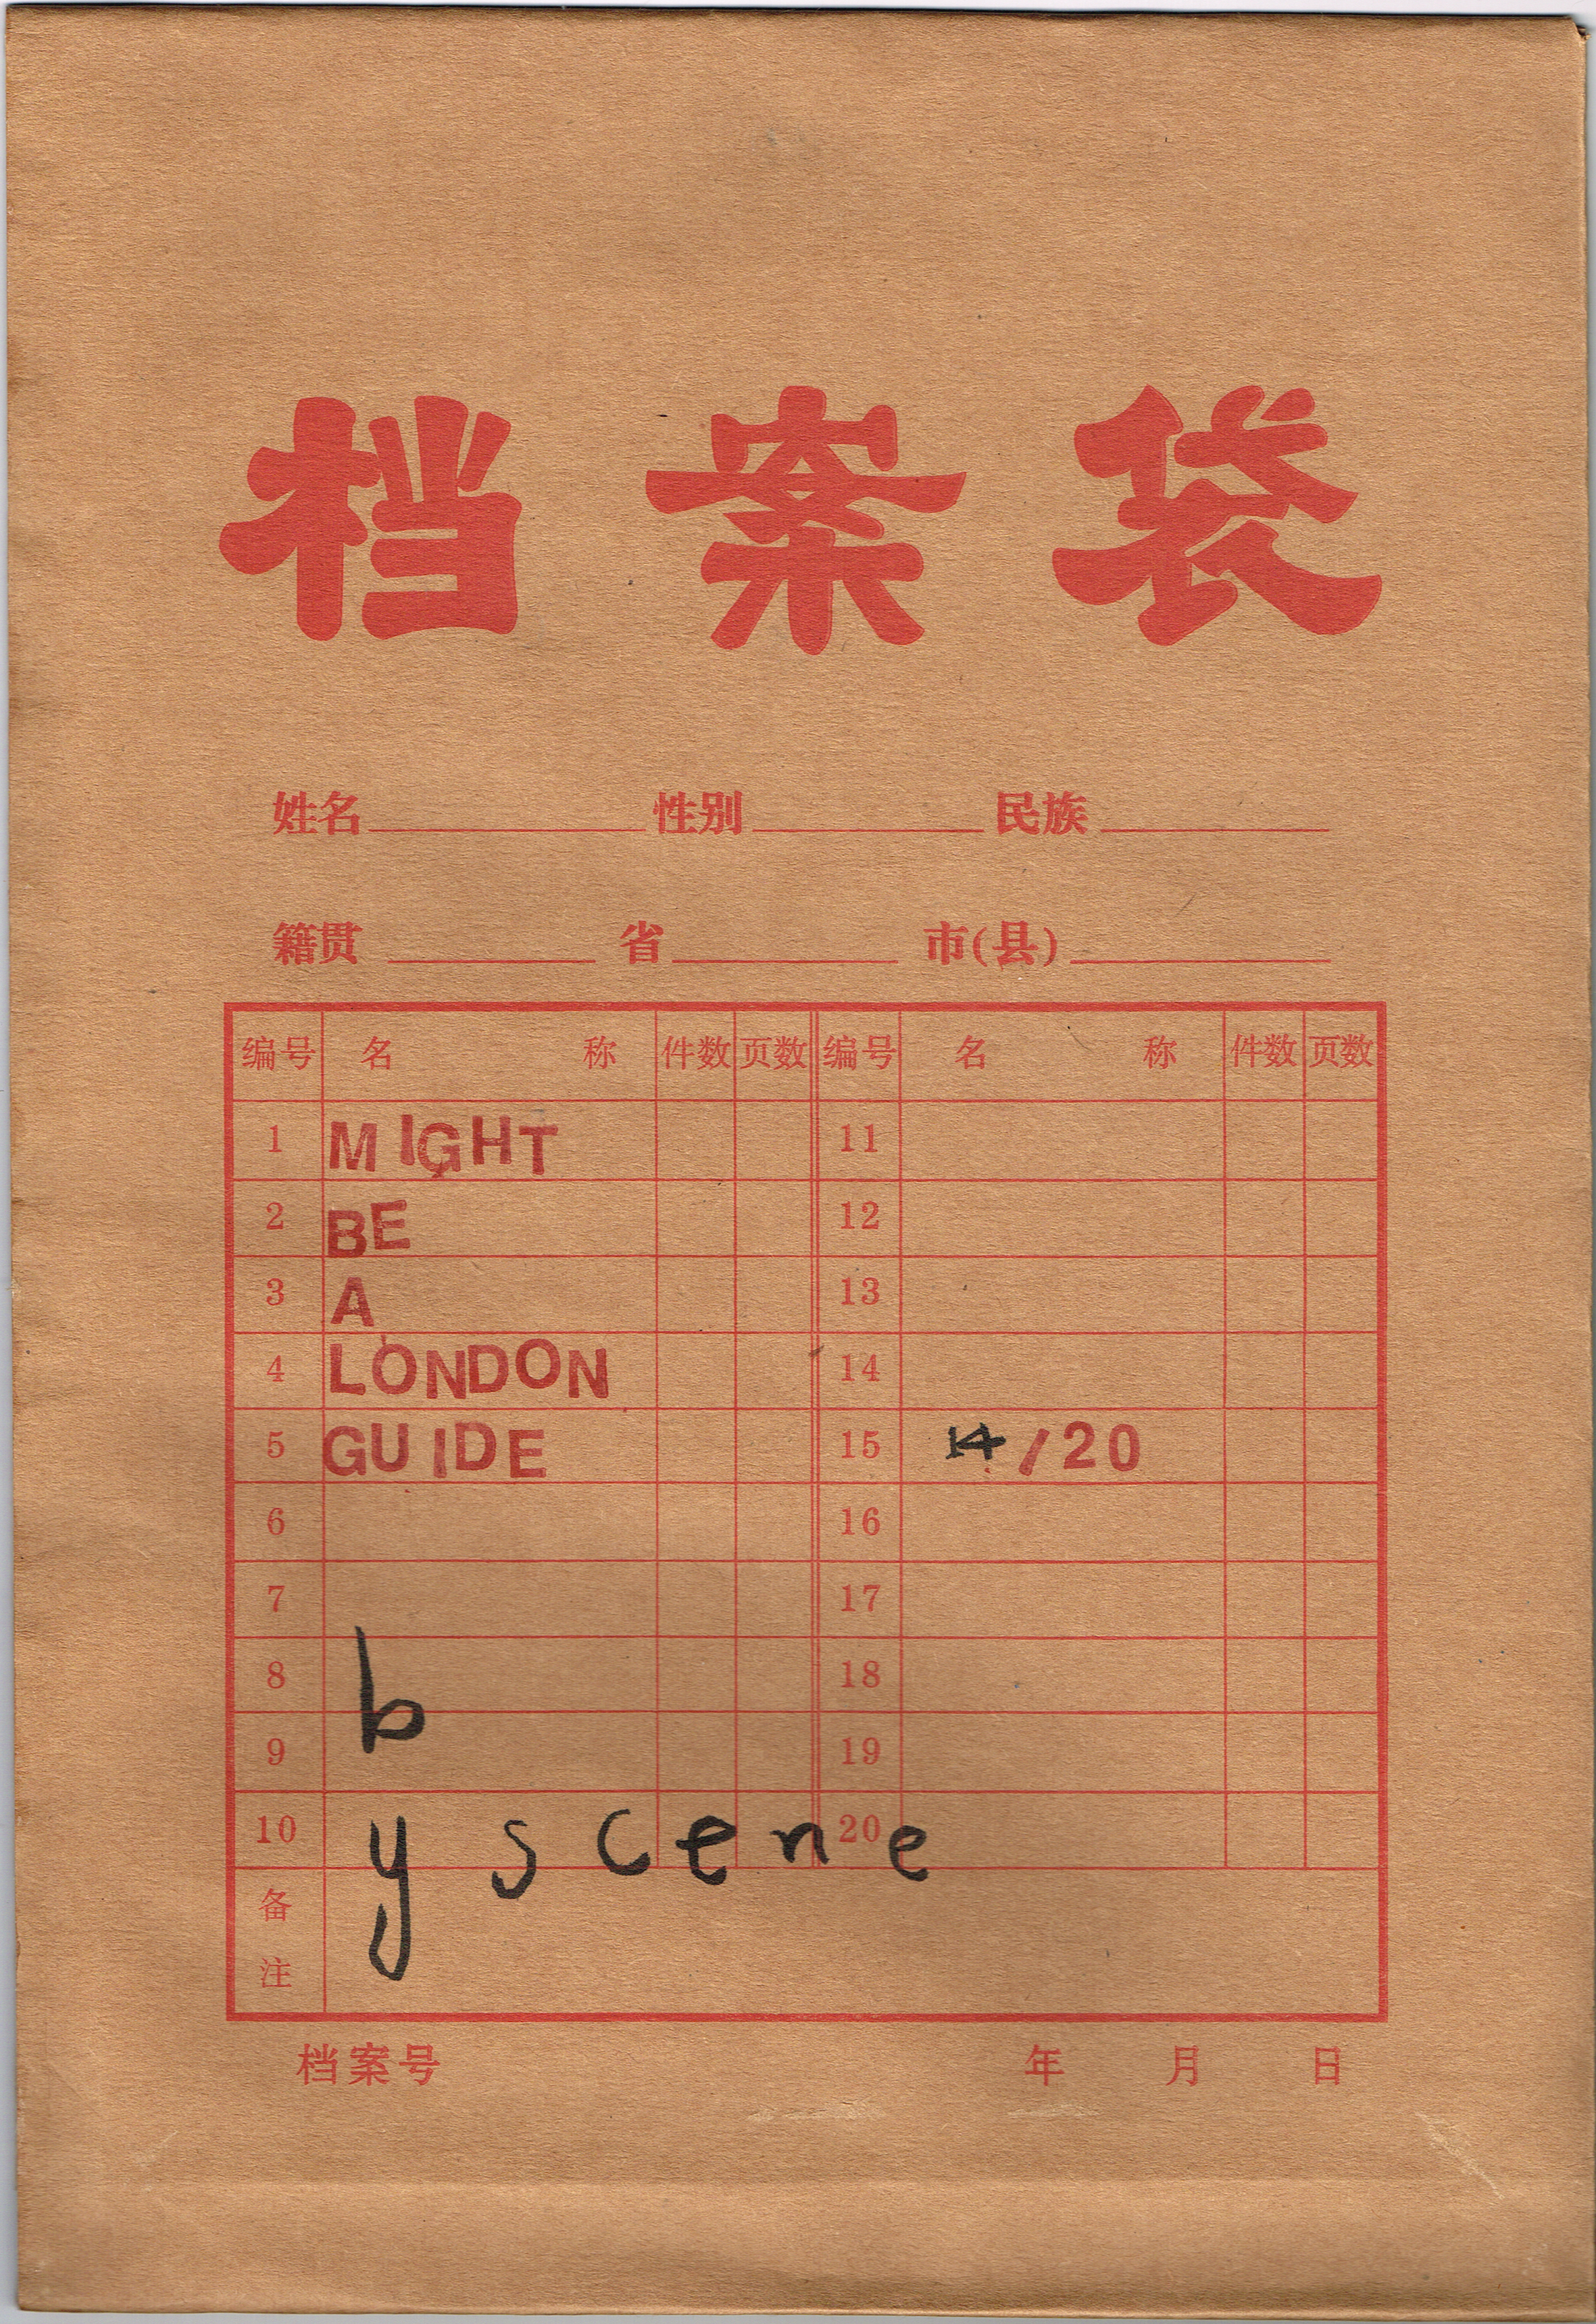 档案袋
姓名 性别 民族
籍贯 省 市(县)
编号 名 称 件数 页数 编号 名 称 件数 页数
1 MIGHT 11
2 BE 12
3 A 13
4 LONDON 14
5 GUIDE 15 14/20
6 16
7 17
8 18
b
9 19
10 20
y scene
备注
档案号 年 月 日